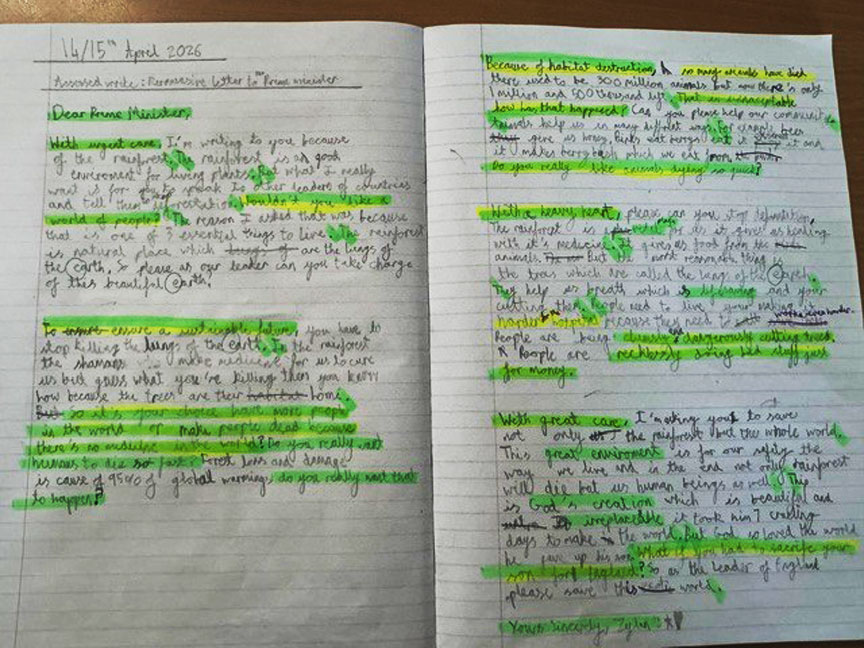 14/15th April 2026
Assessed write: Persuasive letter to the Prime minister
Dear Prime Minister,
With urgent care, I'm writing to you because
of the rainforest. The rainforest is as good
enviroment for living plants. But what I really
want is for you to speak to other leaders of countries
and tell them to deforestation. Wouldn't you like a
world of people? The reason I asked that was because
that is one of 3 essential things to live. The rainforest
is natural place which are the lungs of
the earth. So please as our leader can you take charge
of this beautiful earth.
To ensure ensure a sustainable future, you have to
stop killing the lungs of the earth. In the rainforest
the shamans make medicine for us to cure
us but guess what you're killing them you know
how because the trees are their habitat home.
But so it's your choice have more people
in the world or make people dead because
there's no medicine in the world? Do you really want
humans to die so fast? Forest loss and damage
is cause of 95% of global warming, do you really want that
to happen?
Because of habitat destruction, so many animals have died
there used to be 300 million animals but now there's only
1 million and 500 thousand left. That is unacceptable
how has that happened? Can you please help our community
animals help us in many different ways. For example bees
give us honey, birds eat berrys eat it it and
it makes berry bush which we eat from
Do you really like animals dying so quick?
With a heavy heart, please can you stop deforestation.
The rainforest is place for us it gives us healing
with it's medicine. It gives us food from the
animals. But the most reasonable thing is
the trees which are called the lungs of the earth.
They help us breath which is lifesaving and your
cutting them. People need to live your making it
harder because they need to work even harder.
People are being clumsy and dangerously cutting trees.
People are recklessly doing bad stuff just
for money.
With great care, I'm asking you to save
not only the rainforest but the whole world.
This great enviroment is for our safety the
way we live and in the end not only rainforest
will die but us human beings as well. This
is God's creation which is beautiful and
irreplaceable it took him 7 creating
days to make the world. But God so loved the world
he gave up his son. What if you had to sacrife your
son for England? So as the leader of England
please save this world.
Yours Sincerely,